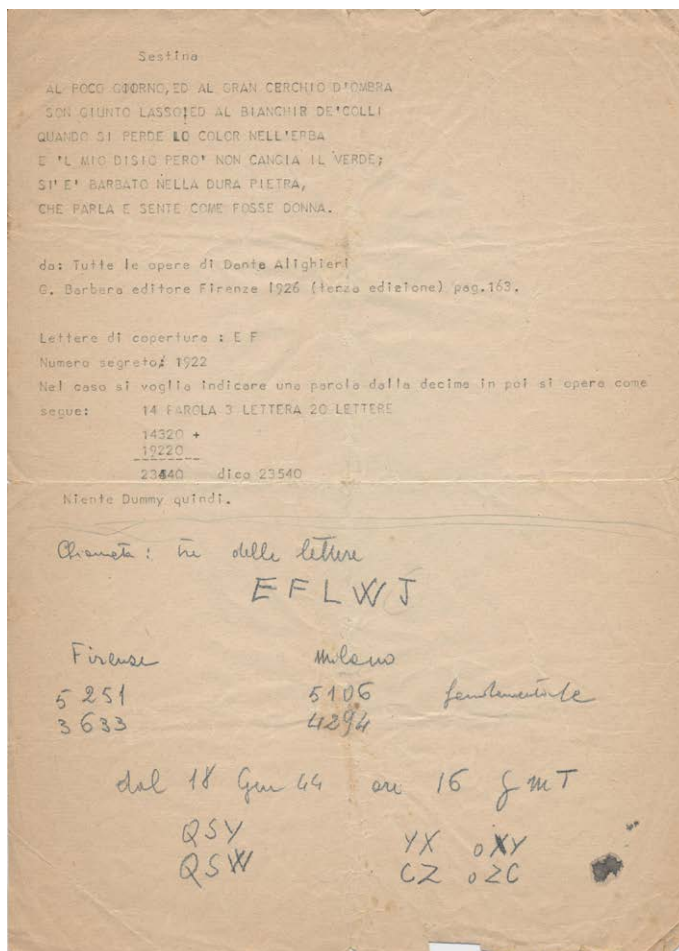 Sestina
AL POCO GIORNO,ED AL GRAN CERCHIO D'OMBRA
SON GIUNTO LASSO!ED AL BIANCHIR DE'COLLI
QUANDO SI PERDE LO COLOR NELL'ERBA
E 'L MIO DISIO PERO' NON CANGIA IL VERDE;
SI'E' BARBATO NELLA DURA PIETRA,
CHE PARLA E SENTE COME FOSSE DONNA.
da: Tutte le opere di Dante Alighieri
G. Barbera editore Firenze 1926 (terza edizione) pag.163.
Lettere di copertura : E F
Numero segreto: 1922
Nel caso si voglia indicare una parola dalla decima in poi si opera come
segue: 14 PAROLA 3 LETTERA 20 LETTERE
14320 +
19220
23540 dico 23540
Niente Dummy quindi.
Chiamata: tre delle lettere
E F L W J
Firenze Milano
5251 5106 fondamentale
3633 4294
dal 18 Gen 44 ore 16 g m T
QSY YX o XY
QSW CZ o ZC